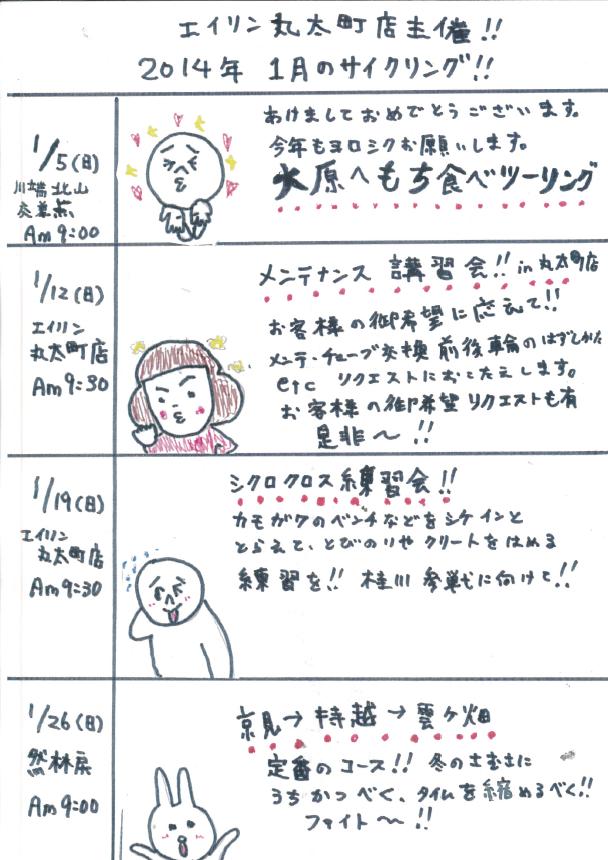 エイリン丸太町店主催!!
2014年 1月のサイクリング!!
1/5(日)
川端北山
交差点
Am 9:00
あけましておめでとうございます。
今年もヨロシクお願いします。
大原へもち食べツーリング
1/12(日)
エイリン
丸太町店
Am 9:30
メンテナンス 講習会!! in 丸太町店
お客様の御希望に応えて!!
メンテ・チューブ交換 前後輪のはずしかた
etc リクエストにおこたえします。
お客様の御希望リクエストも有
是非〜!!
1/19(日)
エイリン
丸太町店
Am 9:30
シクロクロス練習会!!
カモガワのベンチなどをシケインと
とらえて、とびのりやクリートをはめる
練習を!! 桂川 参戦に向けて!!
1/26(日)
然林房
Am 9:00
京見→持越→雲ヶ畑
定番のコース!! 冬のさむさに
うちかつべく、タイムを縮めるべく!!
ファイト〜!!